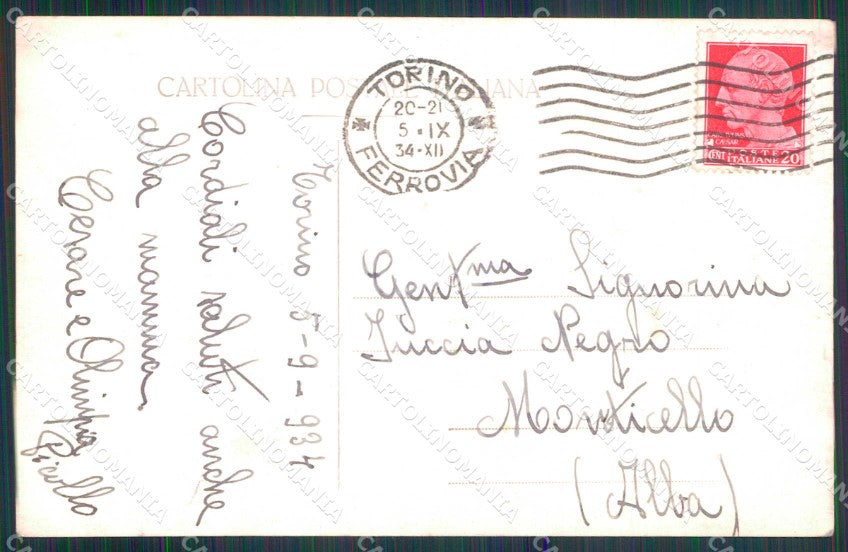 CARTOLINA POSTALE ITALIANA
TORINO
20-21
5·IX
34·XII
FERROVIA
CAESAR
POSTE
ITALIANE 20
Torino 5-9-934
Cordiali saluti anche
alla mamma.
Cesare e Olimpia
Gent.ma Signorina
Negro
Monticello
(Alba)
CARTOLINOMANIA